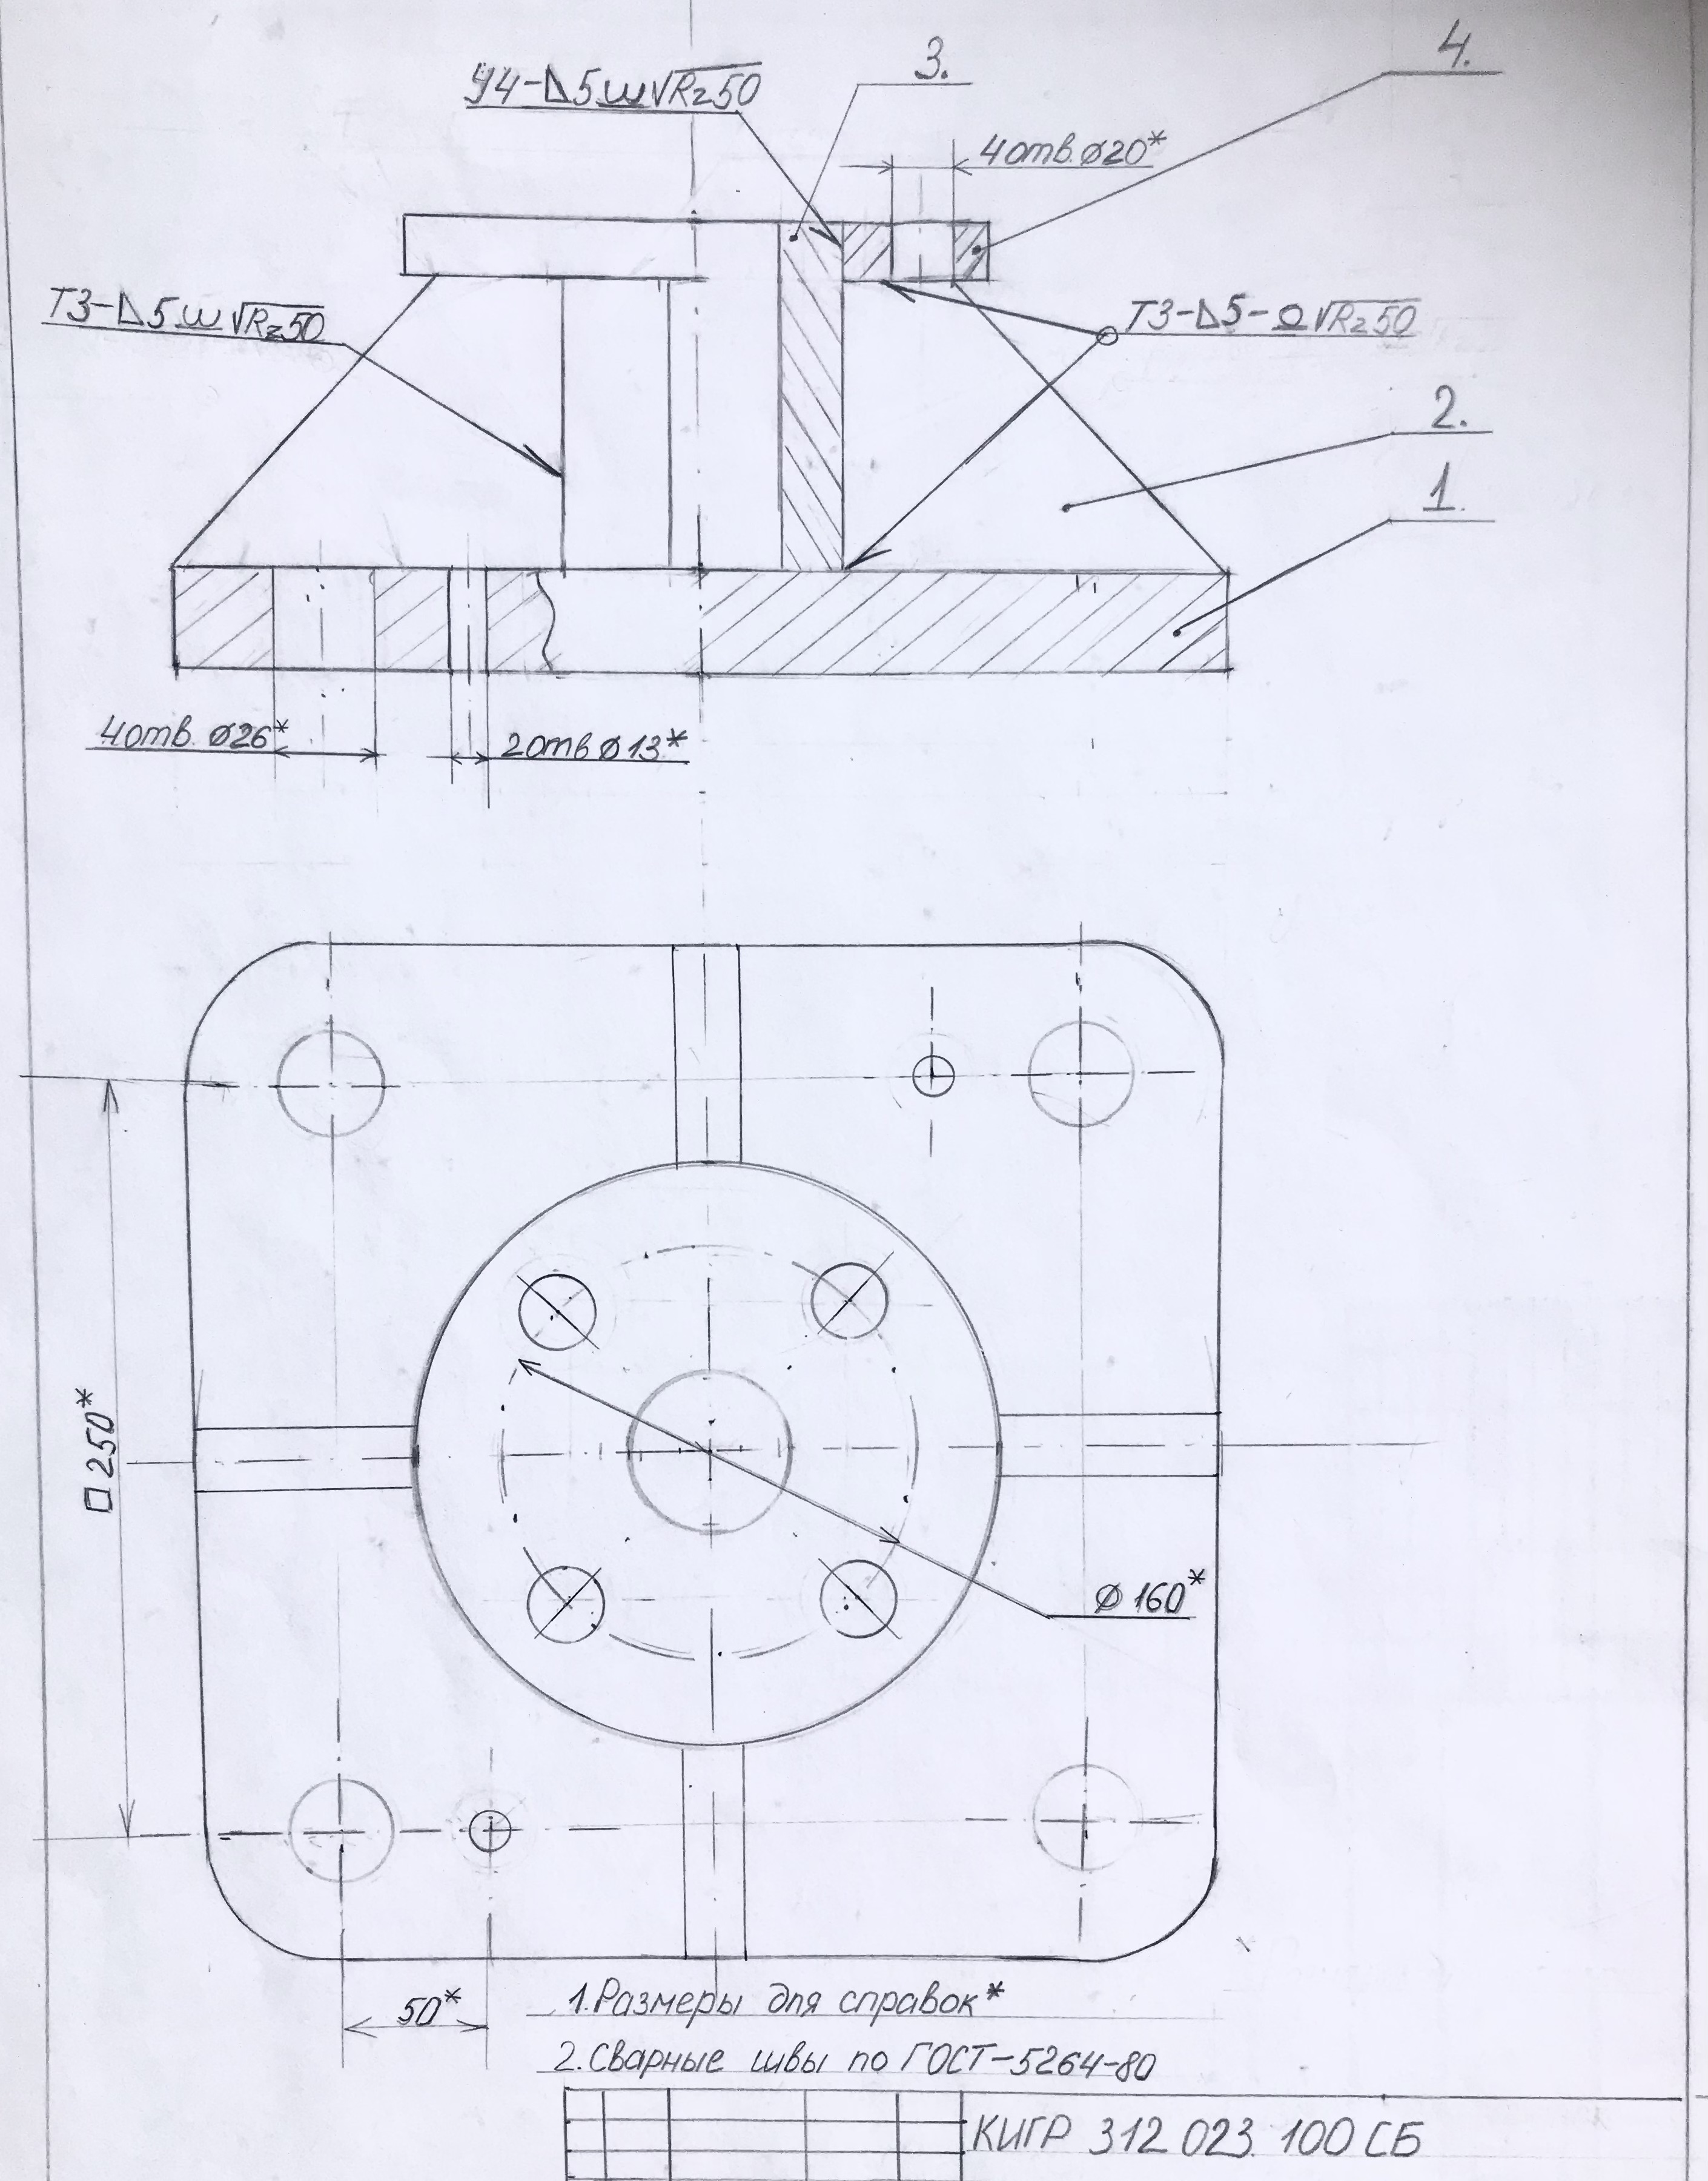 4.
3.
У4-△5 ш √Rz50
4 отв. ø20*
Т3-△5 ш √Rz50
Т3-△5-○ √Rz50
2.
1.
4 отв. ø26*
2 отв ø13*
□ 250*
ø 160*
50*
1. Размеры для справок*
2. Сварные швы по ГОСТ-5264-80
КИГР 312 023. 100 СБ